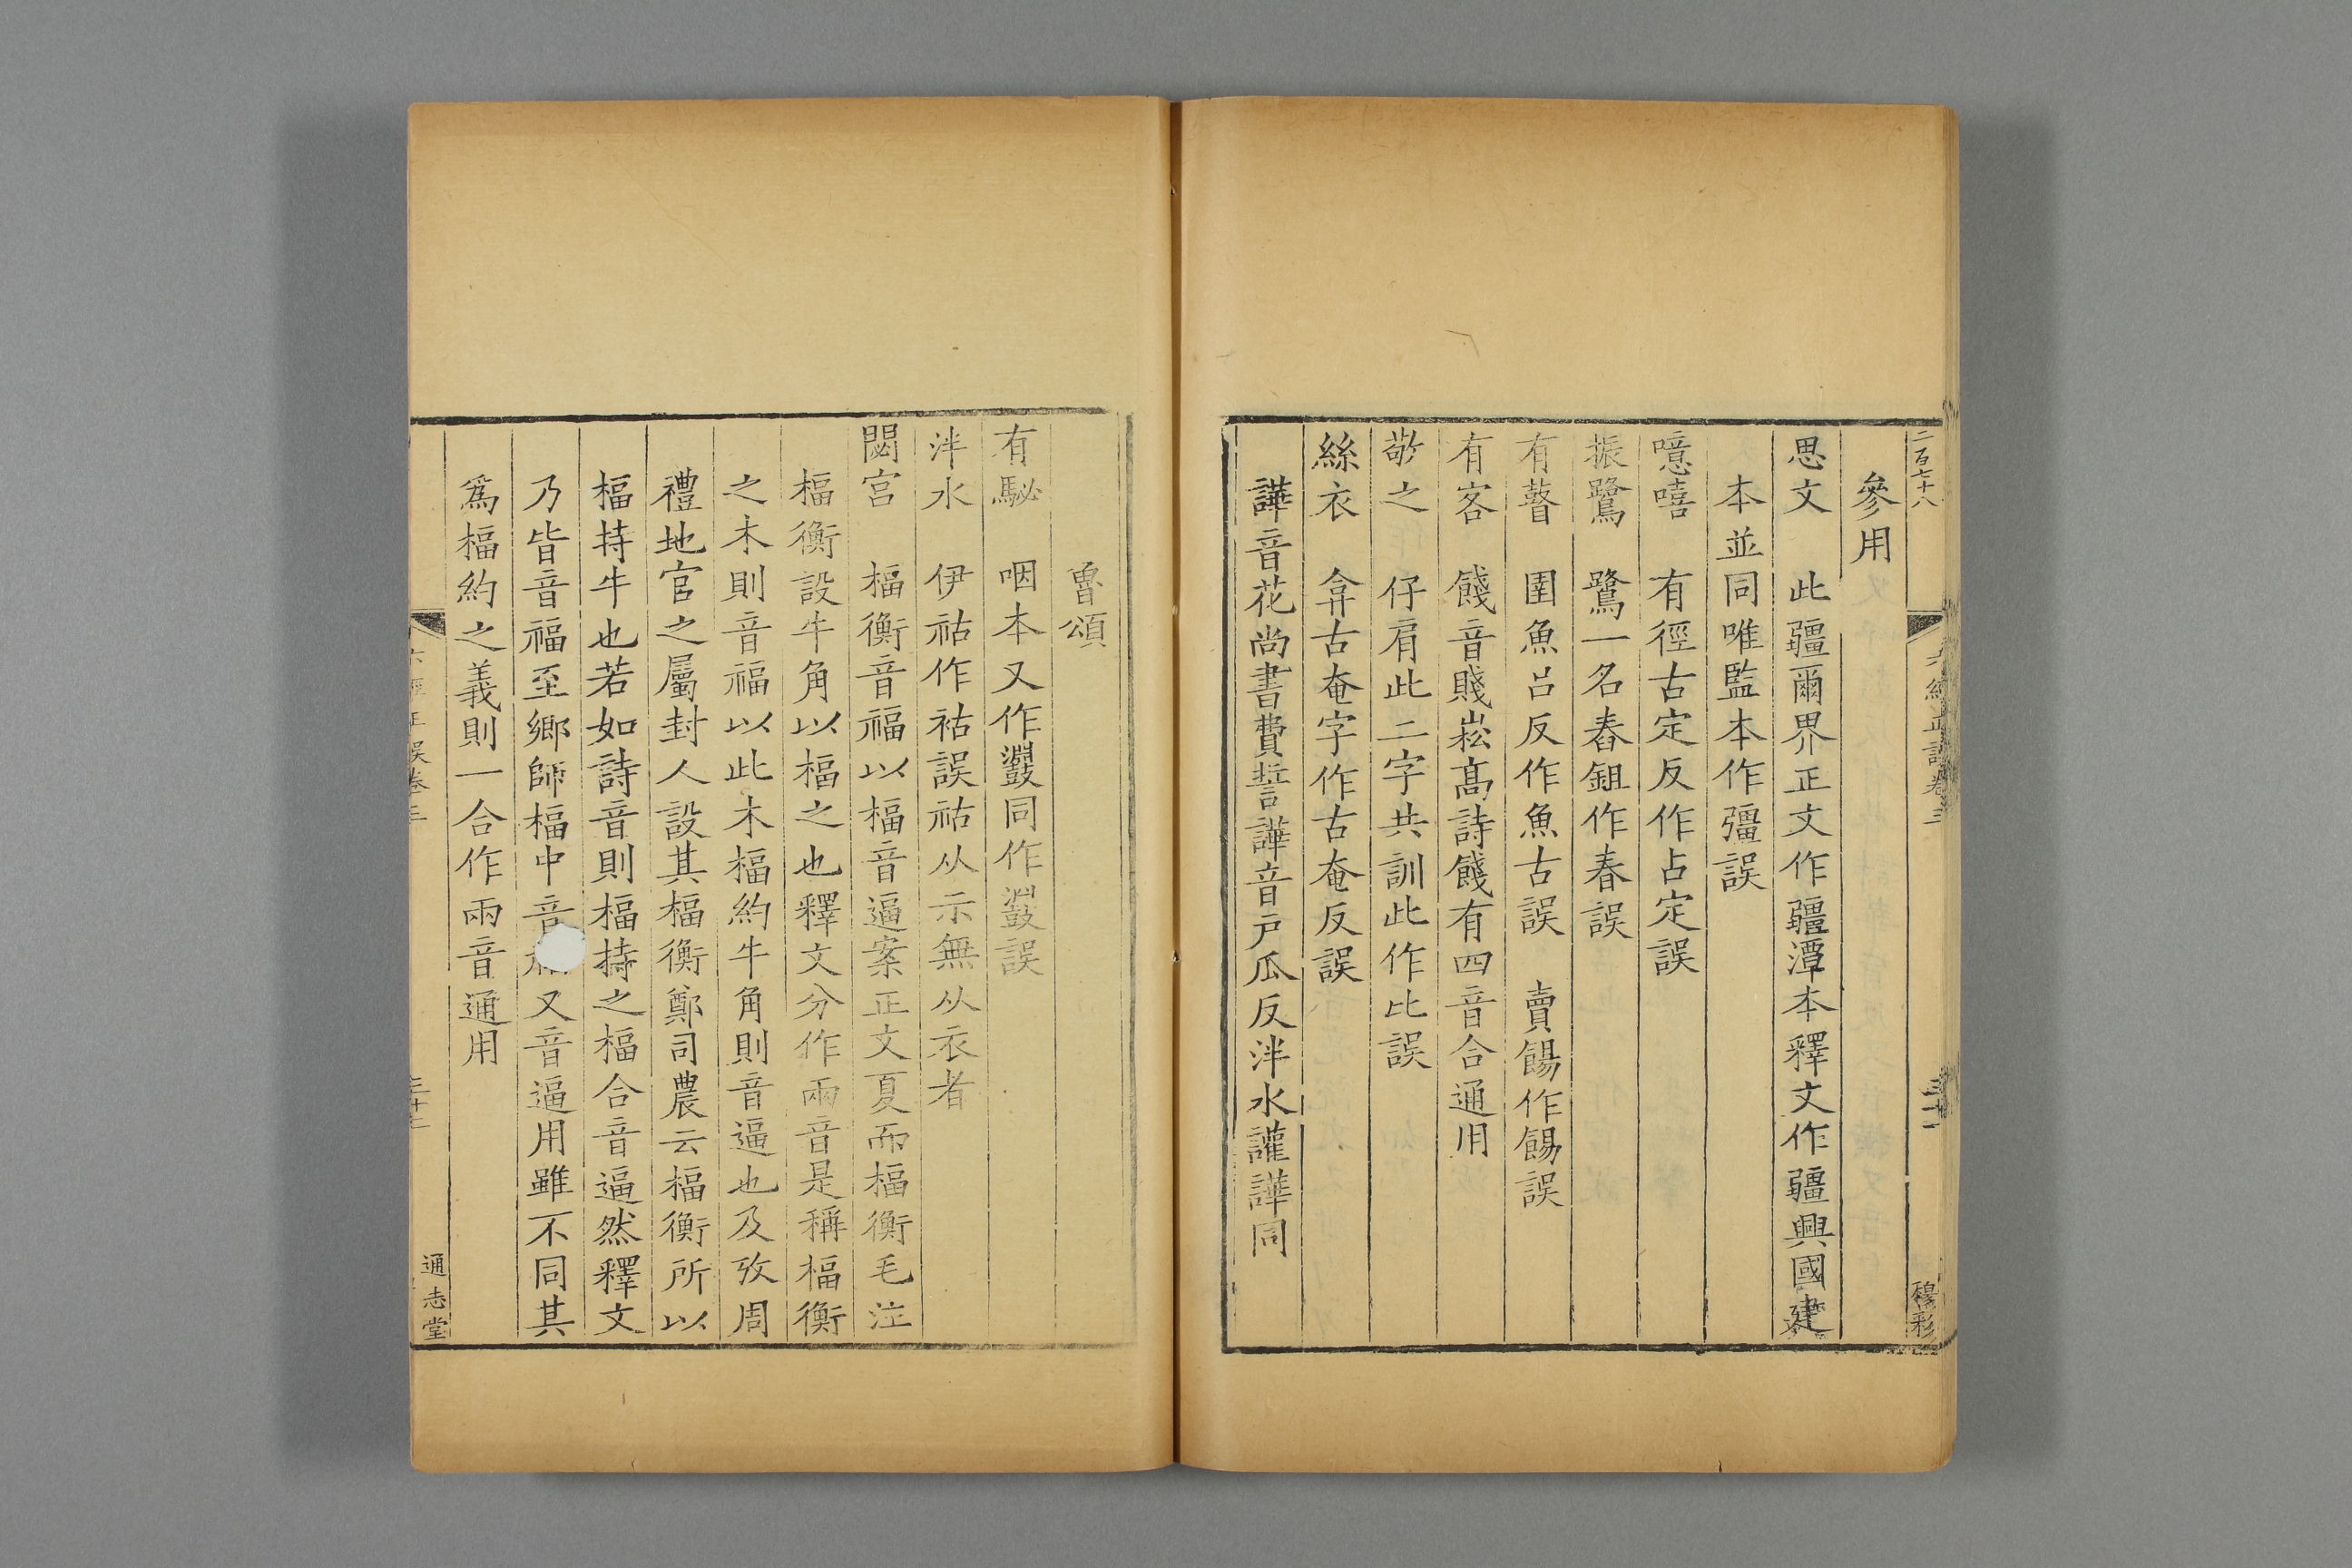 二百七十八
參用
思文　此疆爾界正文作疆潭本釋文作疆興國建
本並同唯監本作彊誤
噫嘻　有徑古定反作占定誤
振鷺　鷺一名舂鉏作春誤
有瞽　圉魚呂反作魚古誤　賣餳作餳誤
有客　餞音賤崧高詩餞有四音合通用
敬之　仔肩此二字共訓此作比誤
絲衣　弇古奄字作古奄反誤
譁音花尚書費誓譁音戶瓜反泮水讙譁同
魯頌
有駜　咽本又作鼝同作鼝誤
泮水　伊祜作祜誤祜从示無从衣者
閟宮　楅衡音福以楅音逼案正文夏而楅衡毛注
楅衡設牛角以楅之也釋文分作兩音是稱楅衡
之木則音福以此木楅約牛角則音逼也及攷周
禮地官之屬封人設其楅衡鄭司農云楅衡所以
楅持牛也若如詩音則楅持之楅合音逼然釋文
乃皆音福至鄉師楅中音又音逼用雖不同其
爲楅約之義則一合作兩音通用
六經正誤卷三
通志堂